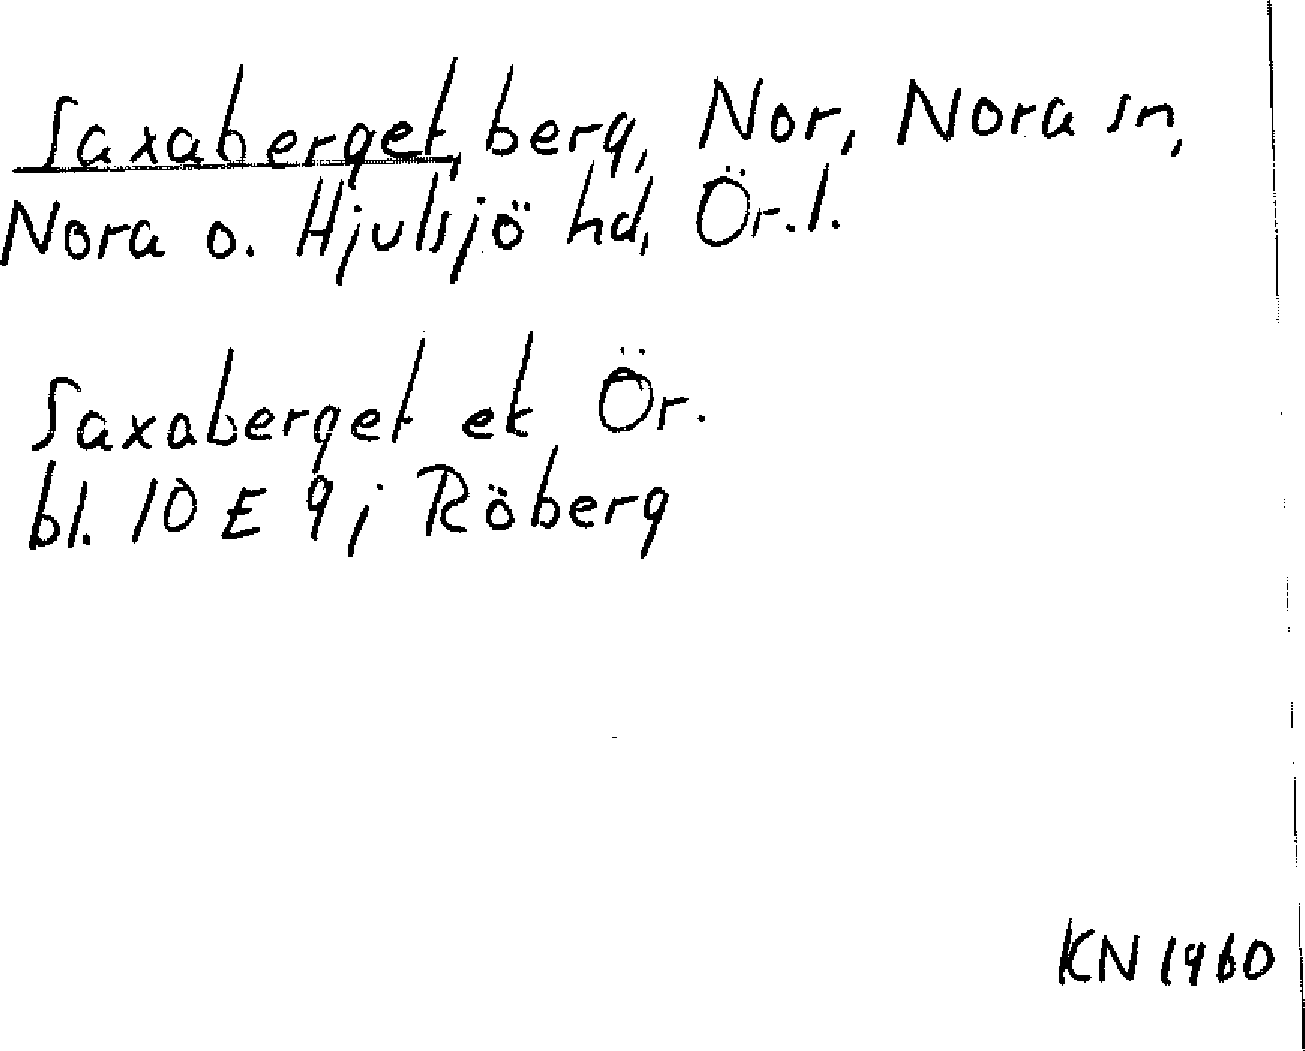 Saxaberget, berg, Nor, Nora sn,
Nora o. Hjulsjö hd, Ör.l.
Saxaberget ek Ör.
bl. 10 E 9 j Röberg
KN 1960